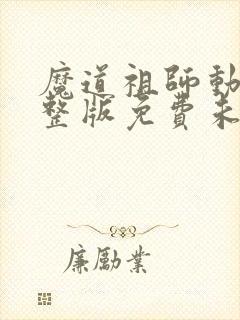 魔道祖師動
整版免費未
廉勵業